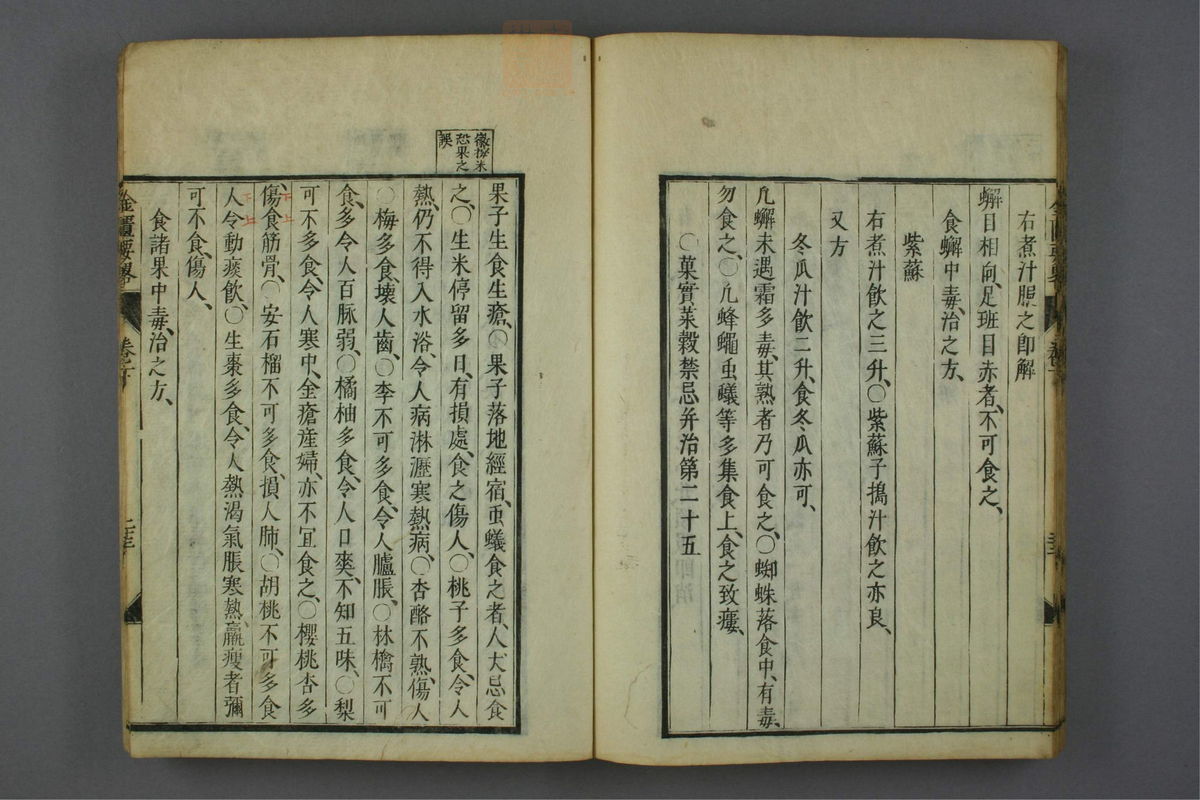 右煮汁服之卽解
蠏目相向足班目赤者、不可食之、
食蠏中毒、治之方、
紫蘇
右煮汁飮之三升、〇紫蘇子搗汁飮之亦良、
又方
冬瓜汁飮二升、食冬瓜亦可、
凡蠏未遇霜多毒、其熟者乃可食之、〇蜘蛛落食中、有毒、
勿食之、〇凡蜂蠅虫蟻等多集食上、食之致瘻、
〇菓實菜穀禁忌幷治第二十五
果子生食生瘡、〇果子落地經宿、虫蟻食之者、人大忌食
之、〇生米停留多日、有損處、食之傷人、〇桃子多食、令人
熱、仍不得入水浴、令人病淋瀝寒熱病、〇杏酪不熟、傷人
〇梅多食、壞人齒、〇李不可多食、令人臚脹、〇林檎不可
食、多令人百脉弱、〇橘柚多食、令人口爽、不知五味、〇梨
可不多食、令人寒中、金瘡產婦、亦不宜食之、〇櫻桃杏多
傷、食筋骨、〇安石榴不可多食、損人肺、〇胡桃不可多食
人令動痰飮、〇生棗多食、令人熱渴氣脹寒熱、羸瘦者彌
可不食、傷人、
食諸果中毒、治之方、
金匱要畧
卷之下